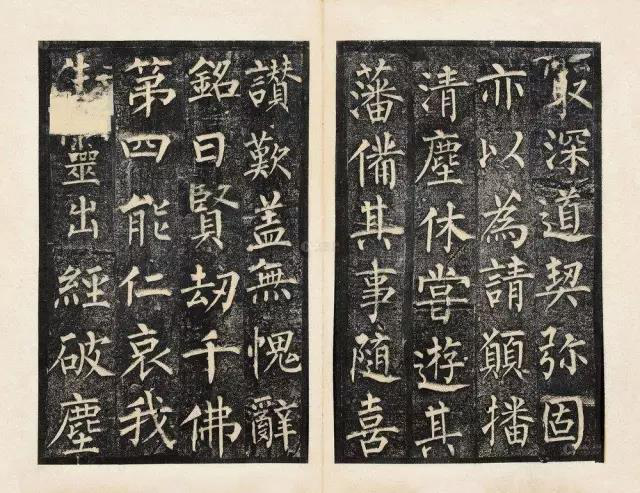 最深道契弥固
亦以為請願播
清塵休嘗遊其
藩備其事隨喜
讃歎盖無愧辭
銘曰賢劫千佛
第四能仁哀我
生靈出經破塵